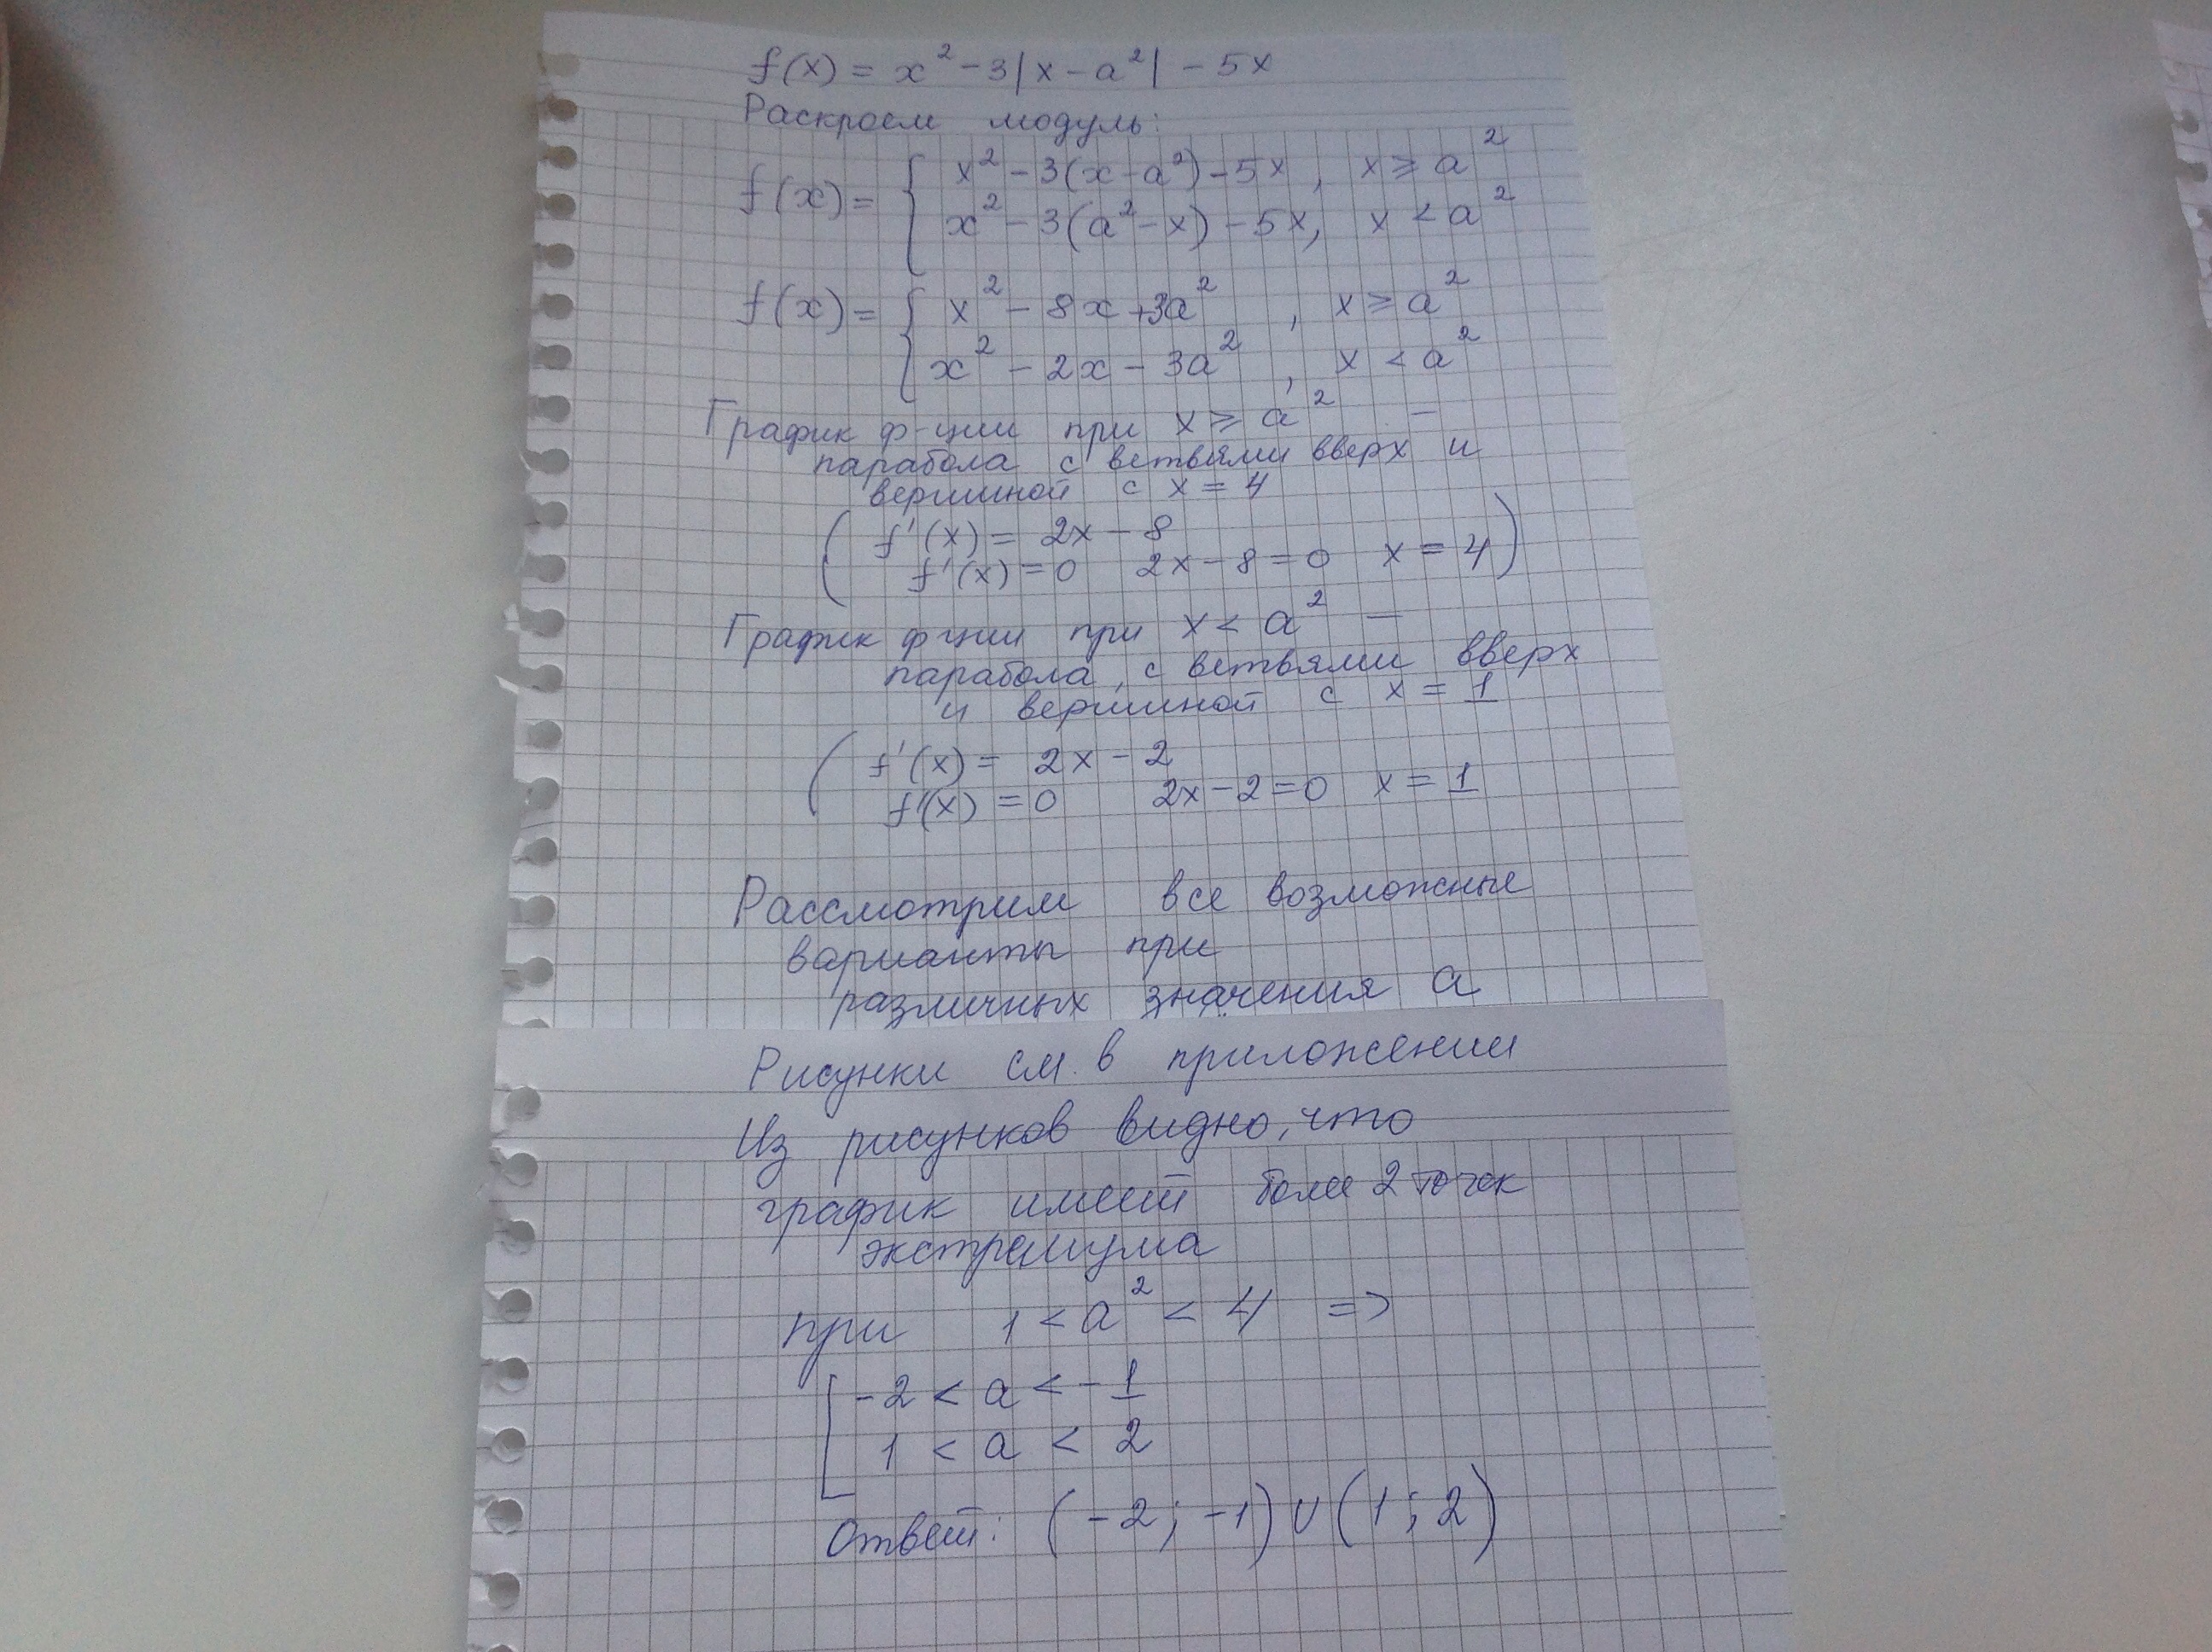 f(x) = x² - 3|x - a²| - 5x
Раскроем модуль:
f(x) = { x² - 3(x - a²) - 5x, x ≥ a²
x² - 3(a² - x) - 5x, x < a²
f(x) = { x² - 8x + 3a², x ≥ a²
x² - 2x - 3a², x < a²
График ф-ции при x ≥ a² —
парабола с ветвями вверх и
вершиной с x = 4
( f'(x) = 2x - 8
f'(x) = 0 2x - 8 = 0 x = 4 )
График фции при x < a² —
парабола, с ветвями вверх
и вершиной с x = 1
( f'(x) = 2x - 2
f'(x) = 0 2x - 2 = 0 x = 1
Рассмотрим все возможные
варианты при
различных значения a
Рисунки см. в приложении
Из рисунков видно, что
график имеет более 2 точек
экстремума
при 1 < a² < 4 =>
[ -2 < a < -1
1 < a < 2
Ответ: (-2; -1) ∪ (1; 2)